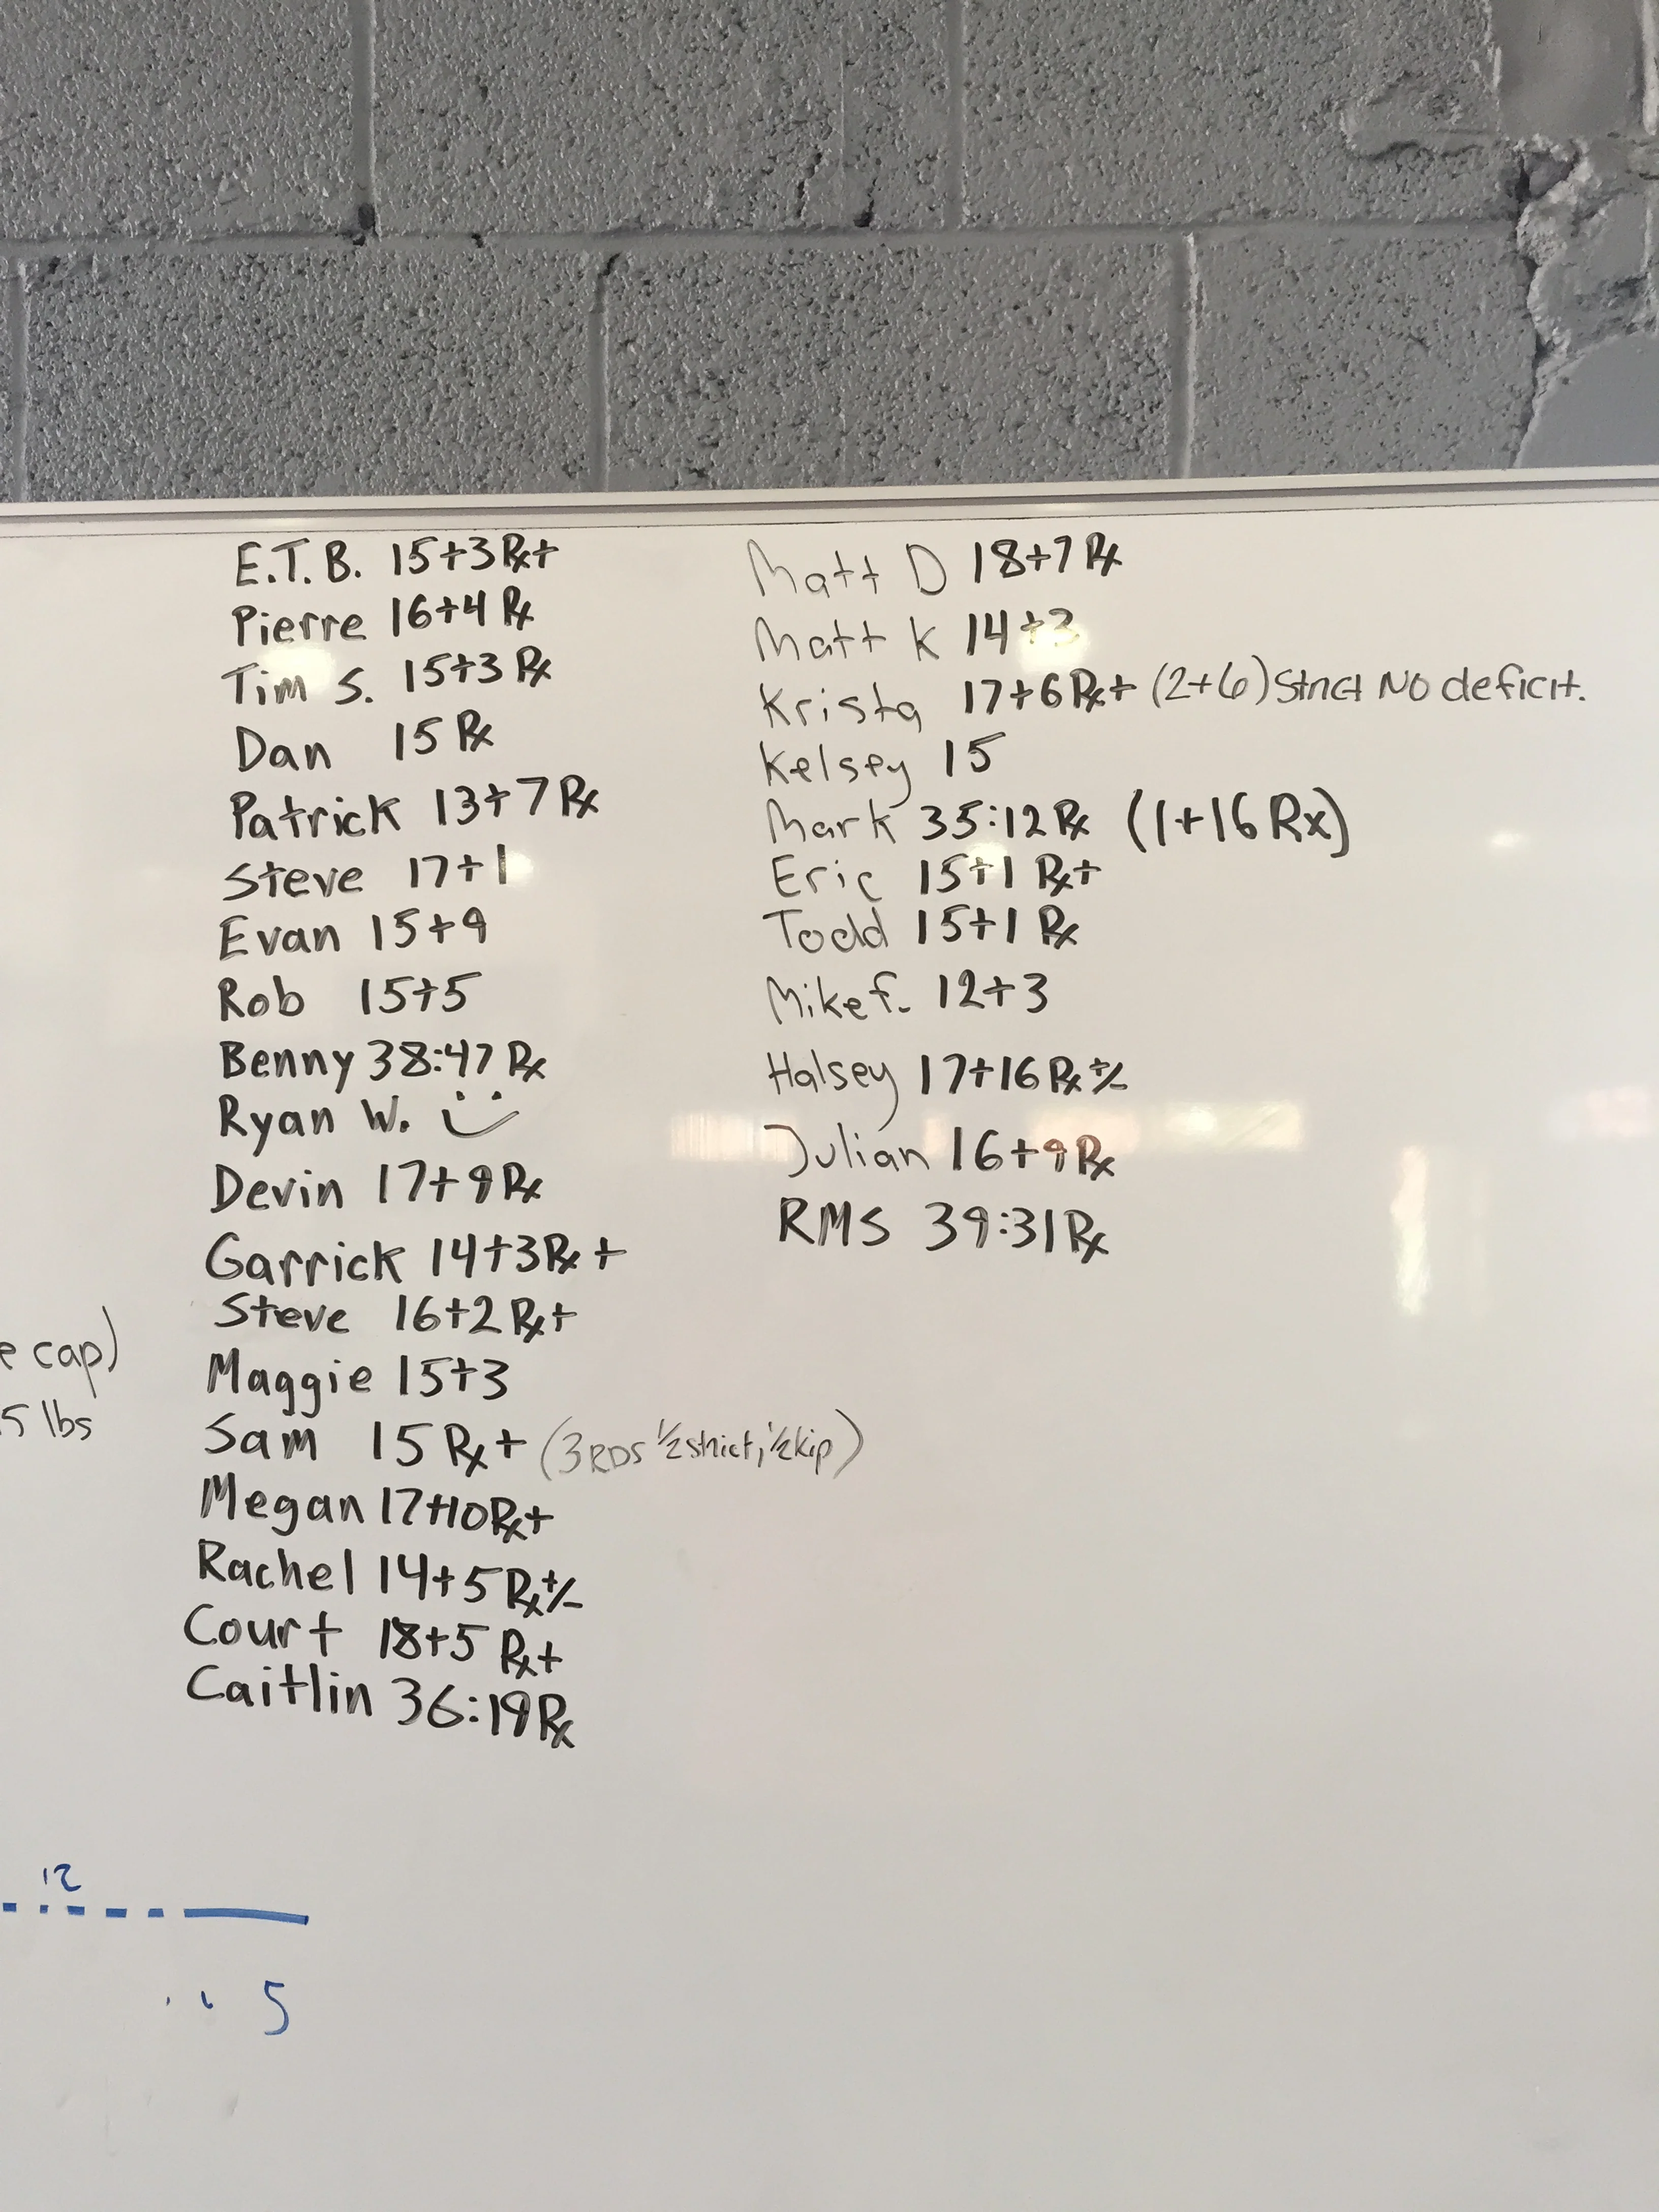 E.T.B. 15+3 Rx+
Pierre 16+4 Rx
Tim S. 15+3 Rx
Dan 15 Rx
Patrick 13+7 Rx
Steve 17+1
Evan 15+9
Rob 15+5
Benny 38:47 Rx
Ryan W.
Devin 17+9 Rx
Garrick 14+3 Rx+
Steve 16+2 Rx+
Maggie 15+3
Sam 15 Rx+ (3 RDS 1/2 strict, 1/2 kip)
Megan 17+10 Rx+
Rachel 14+5 Rx+/-
Court 18+5 Rx+
Caitlin 36:19 Rx
Matt D 18+7 Rx
Matt K 14+3
Krista 17+6 Rx+ (2+6) Strict NO deficit.
Kelsey 15
Mark 35:12 Rx (1+16 Rx)
Eric 15+1 Rx+
Todd 15+1 Rx
Mike f. 12+3
Halsey 17+16 Rx+/-
Julian 16+9 Rx
RMS 39:31 Rx
e cap)
5 lbs
12
5